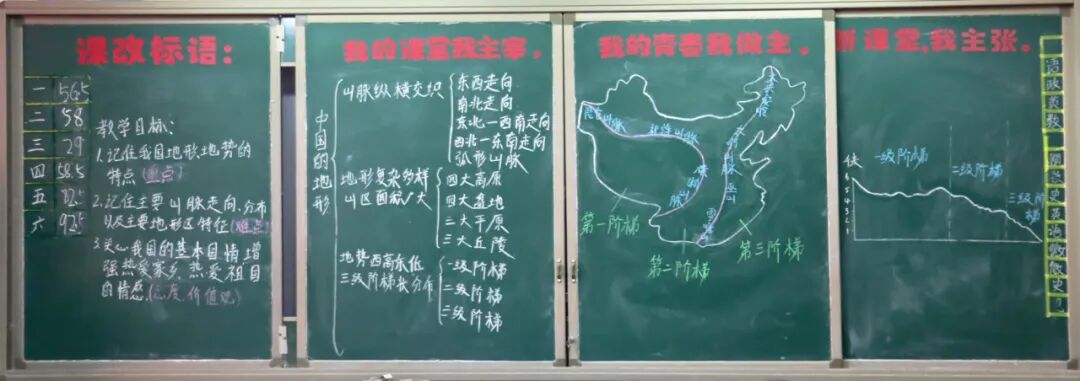 课改标语：
一 56.5
二 58
三 29
四 58.5
五 82.5
六 92.5
教学目标：
1.记住我国地形地势的
特点（重点）
2.记住主要山脉走向、分布
以及主要地形区特征（难点）
3.关心我国的基本国情增
强热爱家乡、热爱祖国
的情感（态度、价值观）
我的课堂我主宰，
中国的地形
山脉纵横交织
东西走向
南北走向
东北—西南走向
西北—东南走向
弧形山脉
地形复杂多样
山区面积广大
四大高原
四大盆地
三大平原
三大丘陵
地势西高东低
三级阶梯状分布
一级阶梯
二级阶梯
三级阶梯
我的青春我做主。
昆仑山脉
祁连山脉
大兴安岭
太行山脉
巫山
横断山脉
第一阶梯
第二阶梯
第三阶梯
新课堂，我主张。
一级阶梯
二级阶梯
三级阶梯
6
5
4
3
2
1
语
政
英
数
史
英